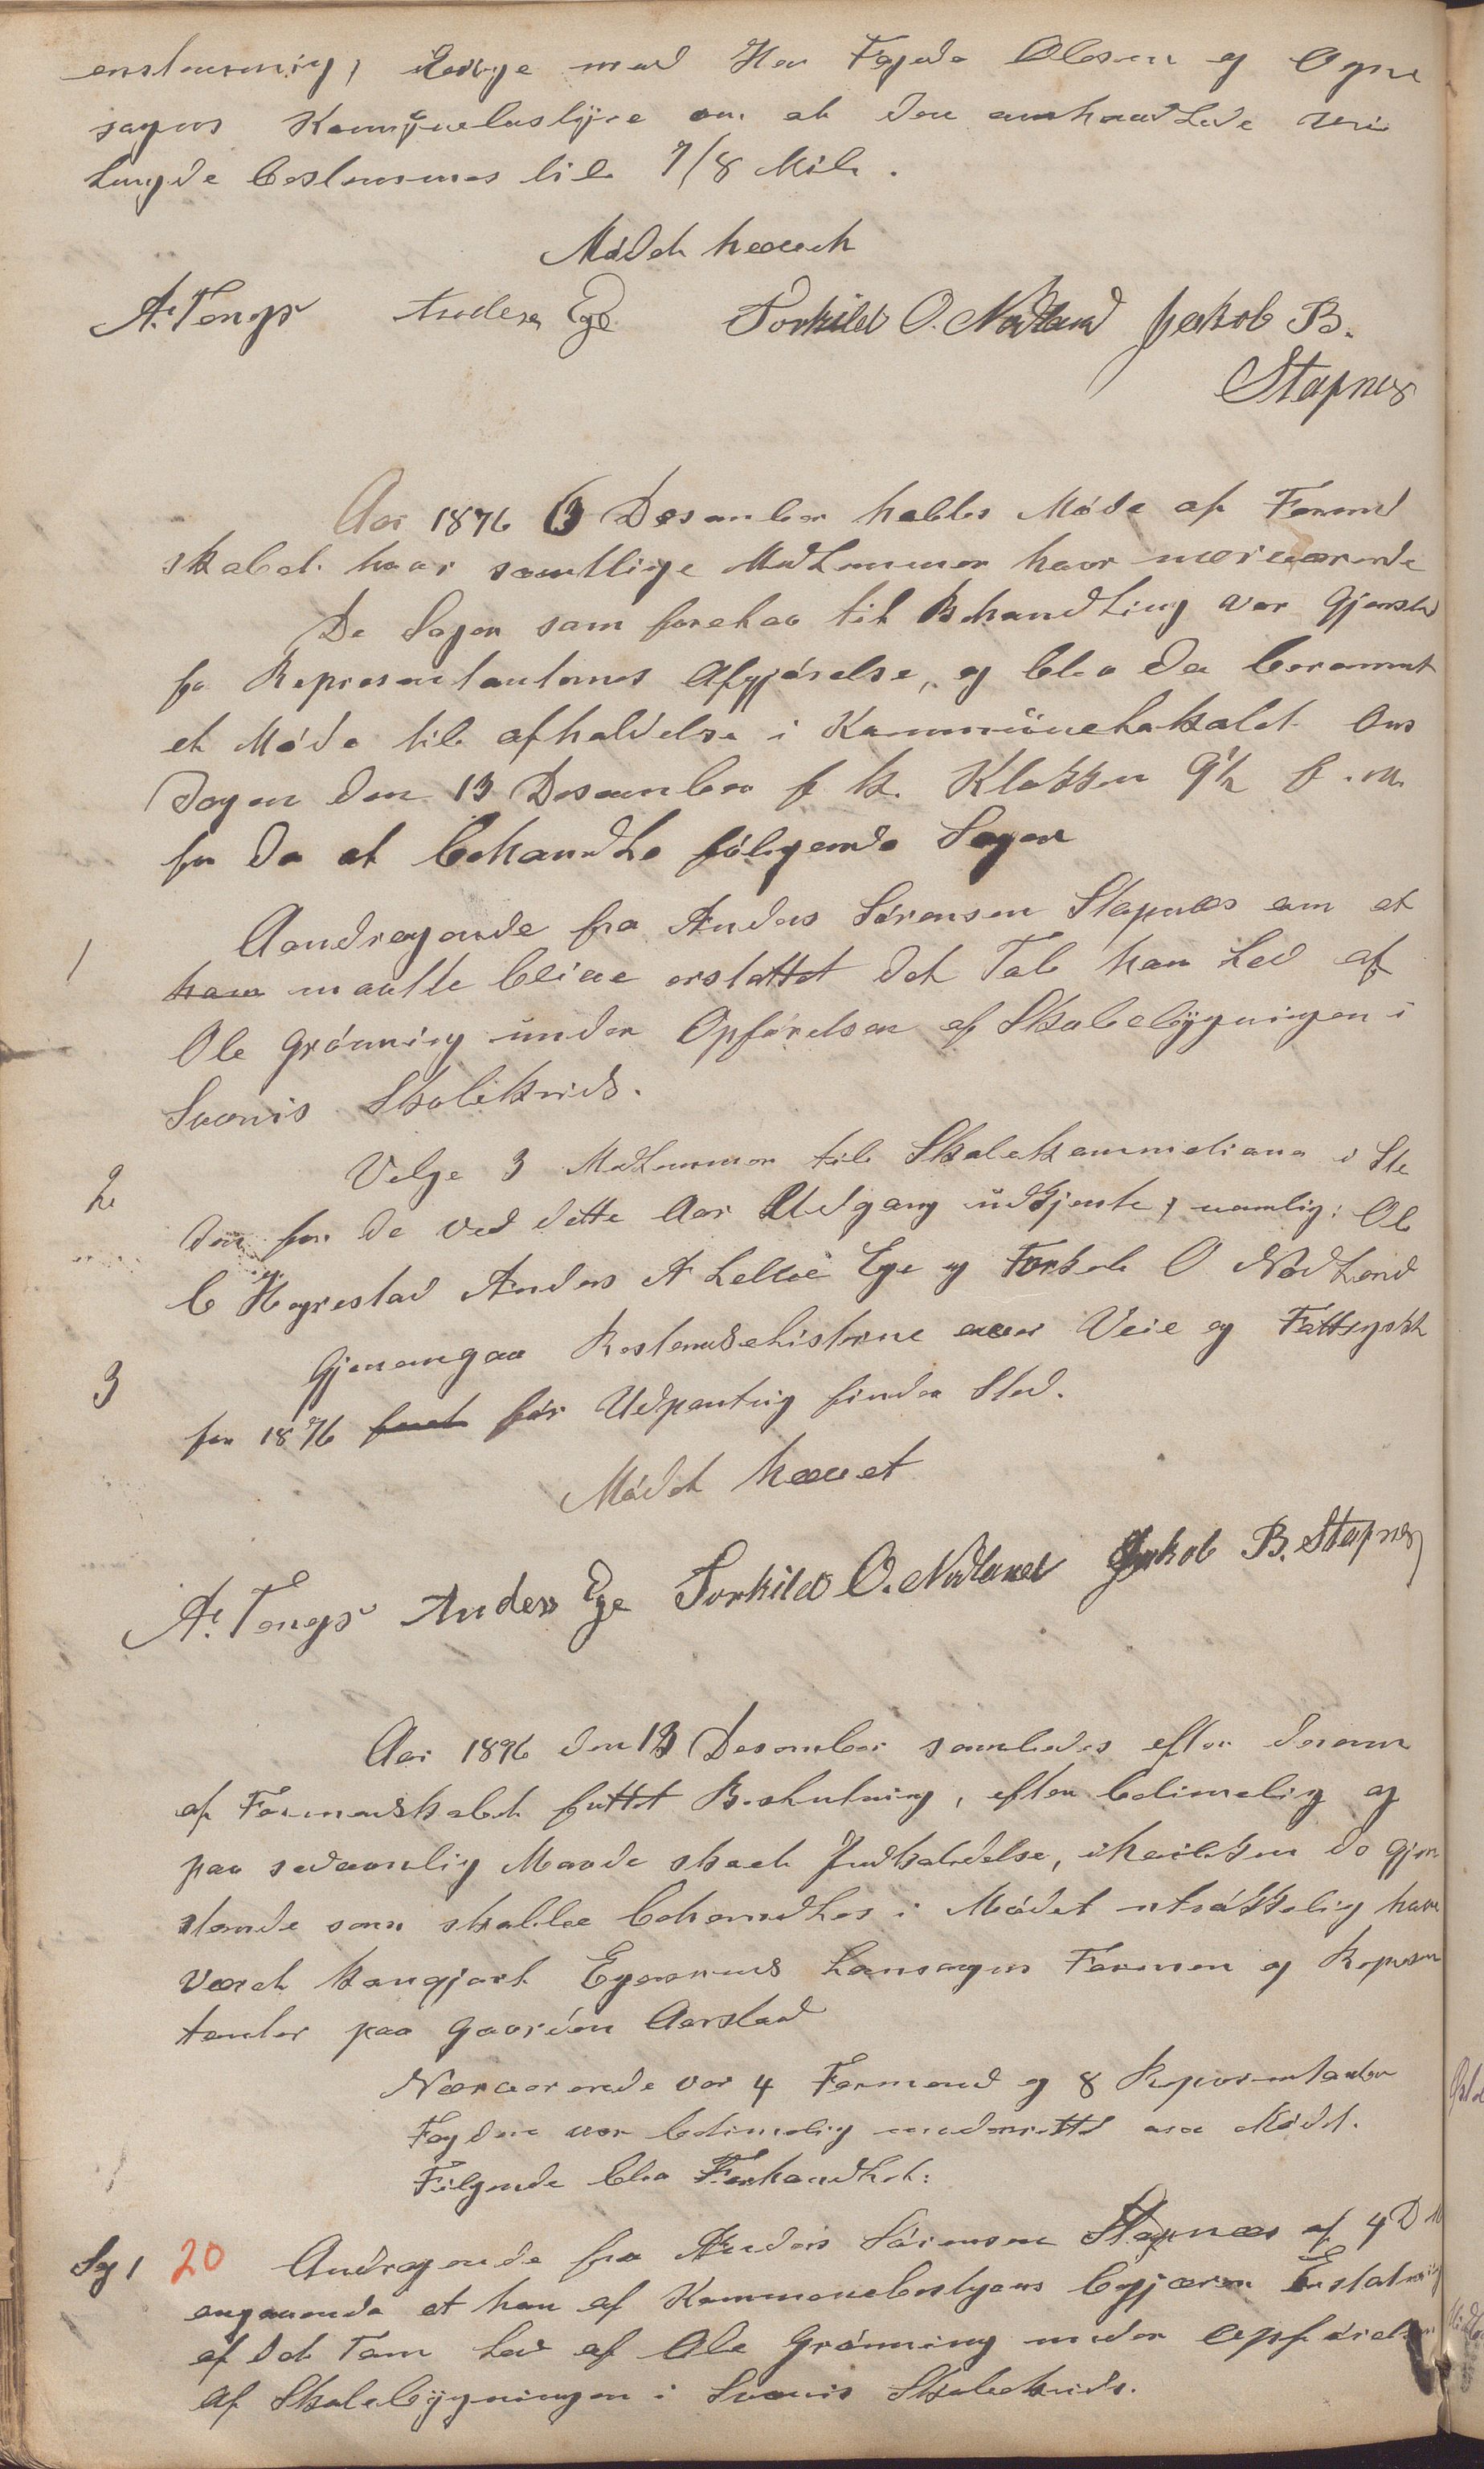 enstemmig, med Hr Foged Olsen og Ogne
sogns Kommunebestyre om at den omhandlede vei
lengde bestemmes til 7/8 Mil.
Mødet hævet
A. Tengs Anders Ege Torkild O. Nodland Jakob B.
Stapnes
Aar 1876 6 Desember holdtes Møde af Formend
skabet hvor samtlige Medlemmer hvor nærværende
De Sager som foretos til Behandling var Gjenstd
for Representanternes Afgjørelse, og blev da berammet
et Møde til afholdelse i Kommunelokalet Ons
dagen den 13 Desember f k. Klokken 9½ F.M.
for da at behandle følgende Sager
1 Aandragende fra Anders Sørensen Stapnæs om at
ham maatte blive erstattet det Tab han led af
Ole Grønning under Opførelsen af Skolebygningen i
Svanis Skolekrids.
2 Velge 3 Medlemmer til Skolekommetionen i Ste
den for de ved dette Aar Udgang udtjente, namlig: Ole
C Hegrestad Anders A Ege og Torkel O Nodland
3 Gjenemgaa Restanselisterne over Veie og Fattigskt
for 1876 før Udpantnig finder Sted.
Mødet hævet
A. Tengs Anders Ege Torkild O. Nodland Jakob B. Stapnes
Aar 1876 den 13 Desember samledes efter derom
af Formendskabet fattet Beslutning, efter betimelig og
paa sedvanlig Maade skeet Indkaldelse, ihvilken de Gjen
stande som skulle behandles i Mødet utrøkkelig have
været kangjort Egersunds Lansogns Formen og Represen
tanter paa Gaarden Aarstad
Nærværende var 4 Formend og 8 Representanter
Fogden var betimelig underrettet om Mødet.
Følgende blev Forhandlet:
Sag 1 20 Andragende fra Anders Sørensen Stapnæs af 4 D M
angaaende at han af Kommunebestyren begjærer Erstatning
af det Tam led af Ole Grønning under Opførelsen
af Skolebygningen i Svanis Skolekrids.